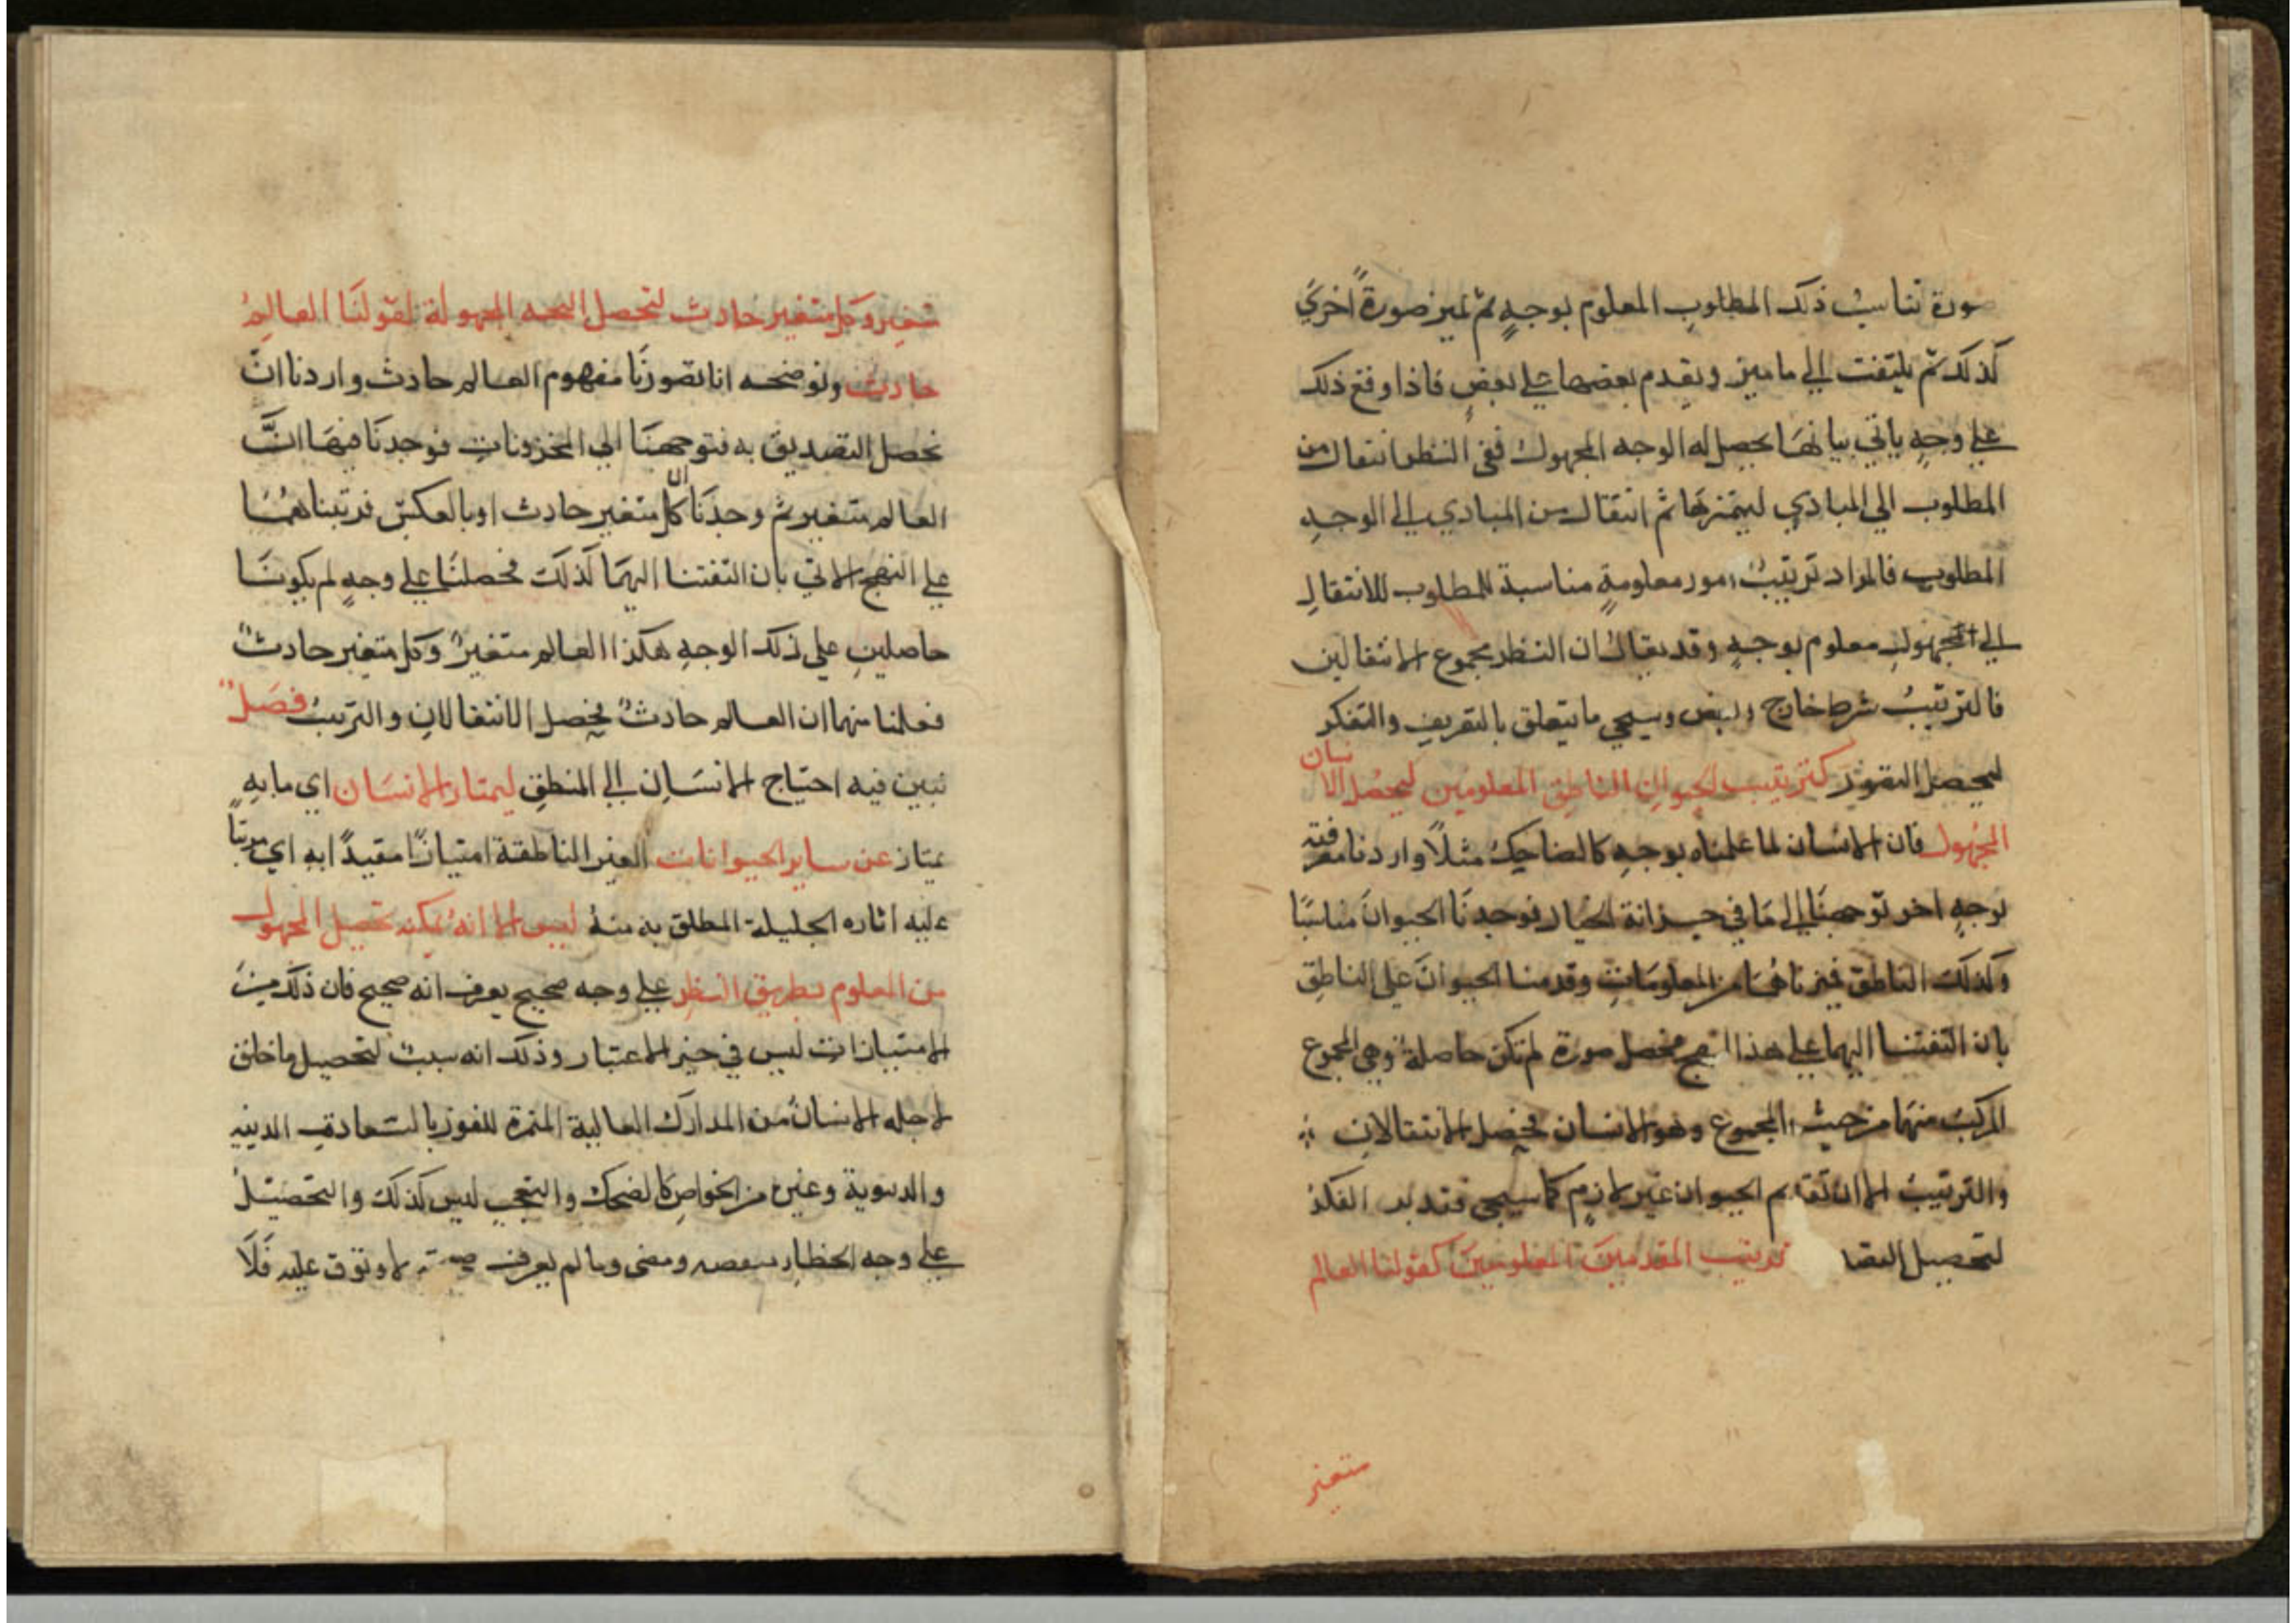 صورة تناسب ذلك المطلوب المعلوم بوجهٍ ثم تميز صورةً اخرى
كذلك ثم يلتفت الى ما ميز ويقدم بعضها على بعضٍ فاذا وقع ذلك
على وجهٍ ياتي بيانها يحصل له الوجه المجهول ففي النظر انتقال من
المطلوب الى المبادي ليتميزها ثم انتقال من المبادي الى الوجهِ
المطلوب فالمراد ترتيبُ امور معلومةٍ مناسبة للمطلوب للانتقالِ
الى المجهول معلوم بوجهٍ وقد يقال ان النظر مجموع الانتقالين
فالترتيبُ شرط خارج وسيجي ما يتعلق بالتعريف والتفكر
ليحصل التصور كترتيب الحيوان الناطق المعلومين ليحصل الانسان
المجهول فان الانسان لما علمناه بوجهِ كالضاحك مثلًا واردنا معرفته
بوجهٍ اخر توجهنَا الى مَا في خزانة الخيال فوجدنَا الحيوانَ مناسبًا
وكذلك الناطق فميزناهُمَا من المعلومَات وقدمنا الحيوانَ على الناطقِ
بان التفتنا اليهما على هذا النهج فحصل صورة لم تكن حاصلة وهي المجموع
المركب منهمَا من حيث المجموع وهو الانسان فحصل الانتقالان
والترتيبُ الا ان تقديم الحيوان غير لازمٍ كما سيجي فتدبر الفكر
لتحصيل التصا ترتيب المقدمتين المعلومتين كقولنا العالم
متغير
متغير وكل متغير حادث لتحصل النتيجه المجهولة لقولنَا العالمُ
حادث ونوضحه انا تصورنَا مفهوم العالم حادث واردنا انّ
نحصل التصديق به فتوجهنَا الى المخزونات فوجدنَا فيهَا انَّ
العالم متغير ثم وجدنَا ان كل متغير حادث او بالعكس فرتبناهُمَا
على النهج الاتي بان التفتنا اليهمَا كذلك فحصلتَا على وجهٍ لم يكونَا
حاصلين على ذلك الوجهِ هكذا العالم متغيرٌ وكل متغير حادثٌ
فعلمنا منهما ان العالم حادثٌ فحصل الانتقالان والترتيبُ فصلٌ
نبين فيه احتياج الانسَانِ الى المنطقِ ليمتاز الانسَان اي ما بهِ
يمتاز عن ساير الحيوانات الغير الناطقة امتيازًا مقيدًا به اي مرتبًا
عليه اثاره الجليلة المطلق به منهُ ليس الا انه يمكنه تحصيل المجهول
من المعلوم بطريق النظر على وجه صحيح يعرف انه صحيح فان ذلك من
الامتيازات ليس في حيز الاعتبار وذلك انه سبب لتحصيل ما خلق
لاجله الانسان من المدارك العالية المثمرة للفوز بالسعادة الدينيه
والدنيوية وغيره من الخواصِ كالضحك والتعجبِ ليس كذلك والتحصيل
على وجه الخطا ومالم يعرف صحته لا وثوق عليه فَلَا